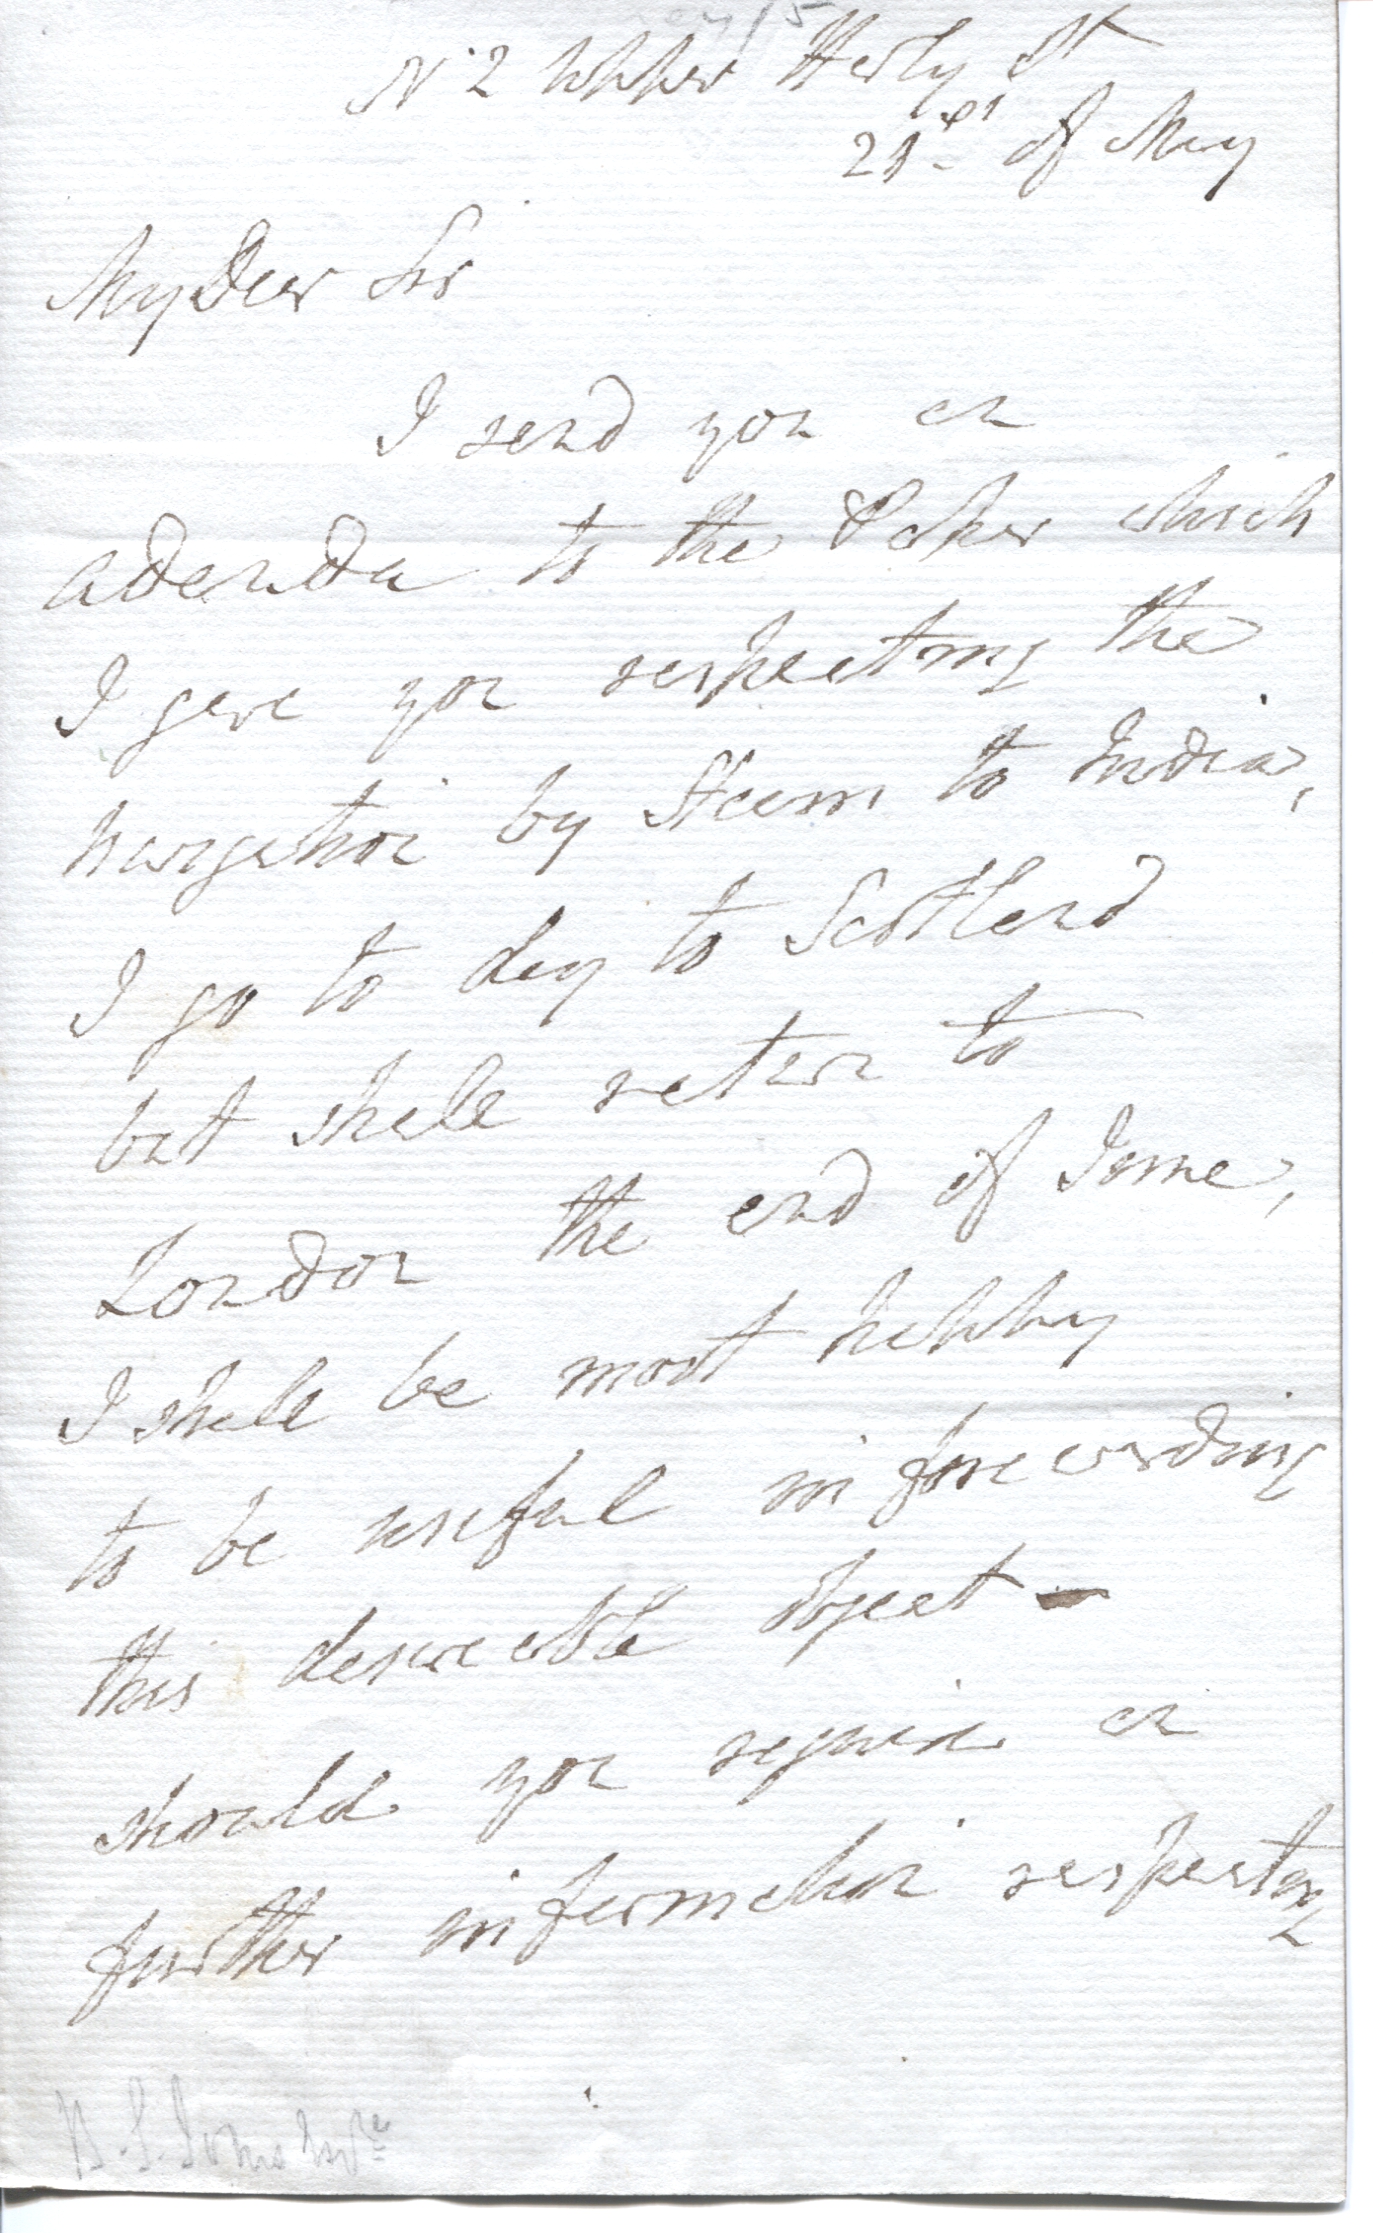 N 2 Upper Harly St
21st of May
My Dear Sir
I send you an
adenda to the Paper which
I gave you respecting the
Navigation by Steam to India,
I go to day to Scotland
but shall return to
London the end of June,
I shall be most happy
to be useful in forewarding
this desireable object -
should you require an
further information respecting
B. S. Jones